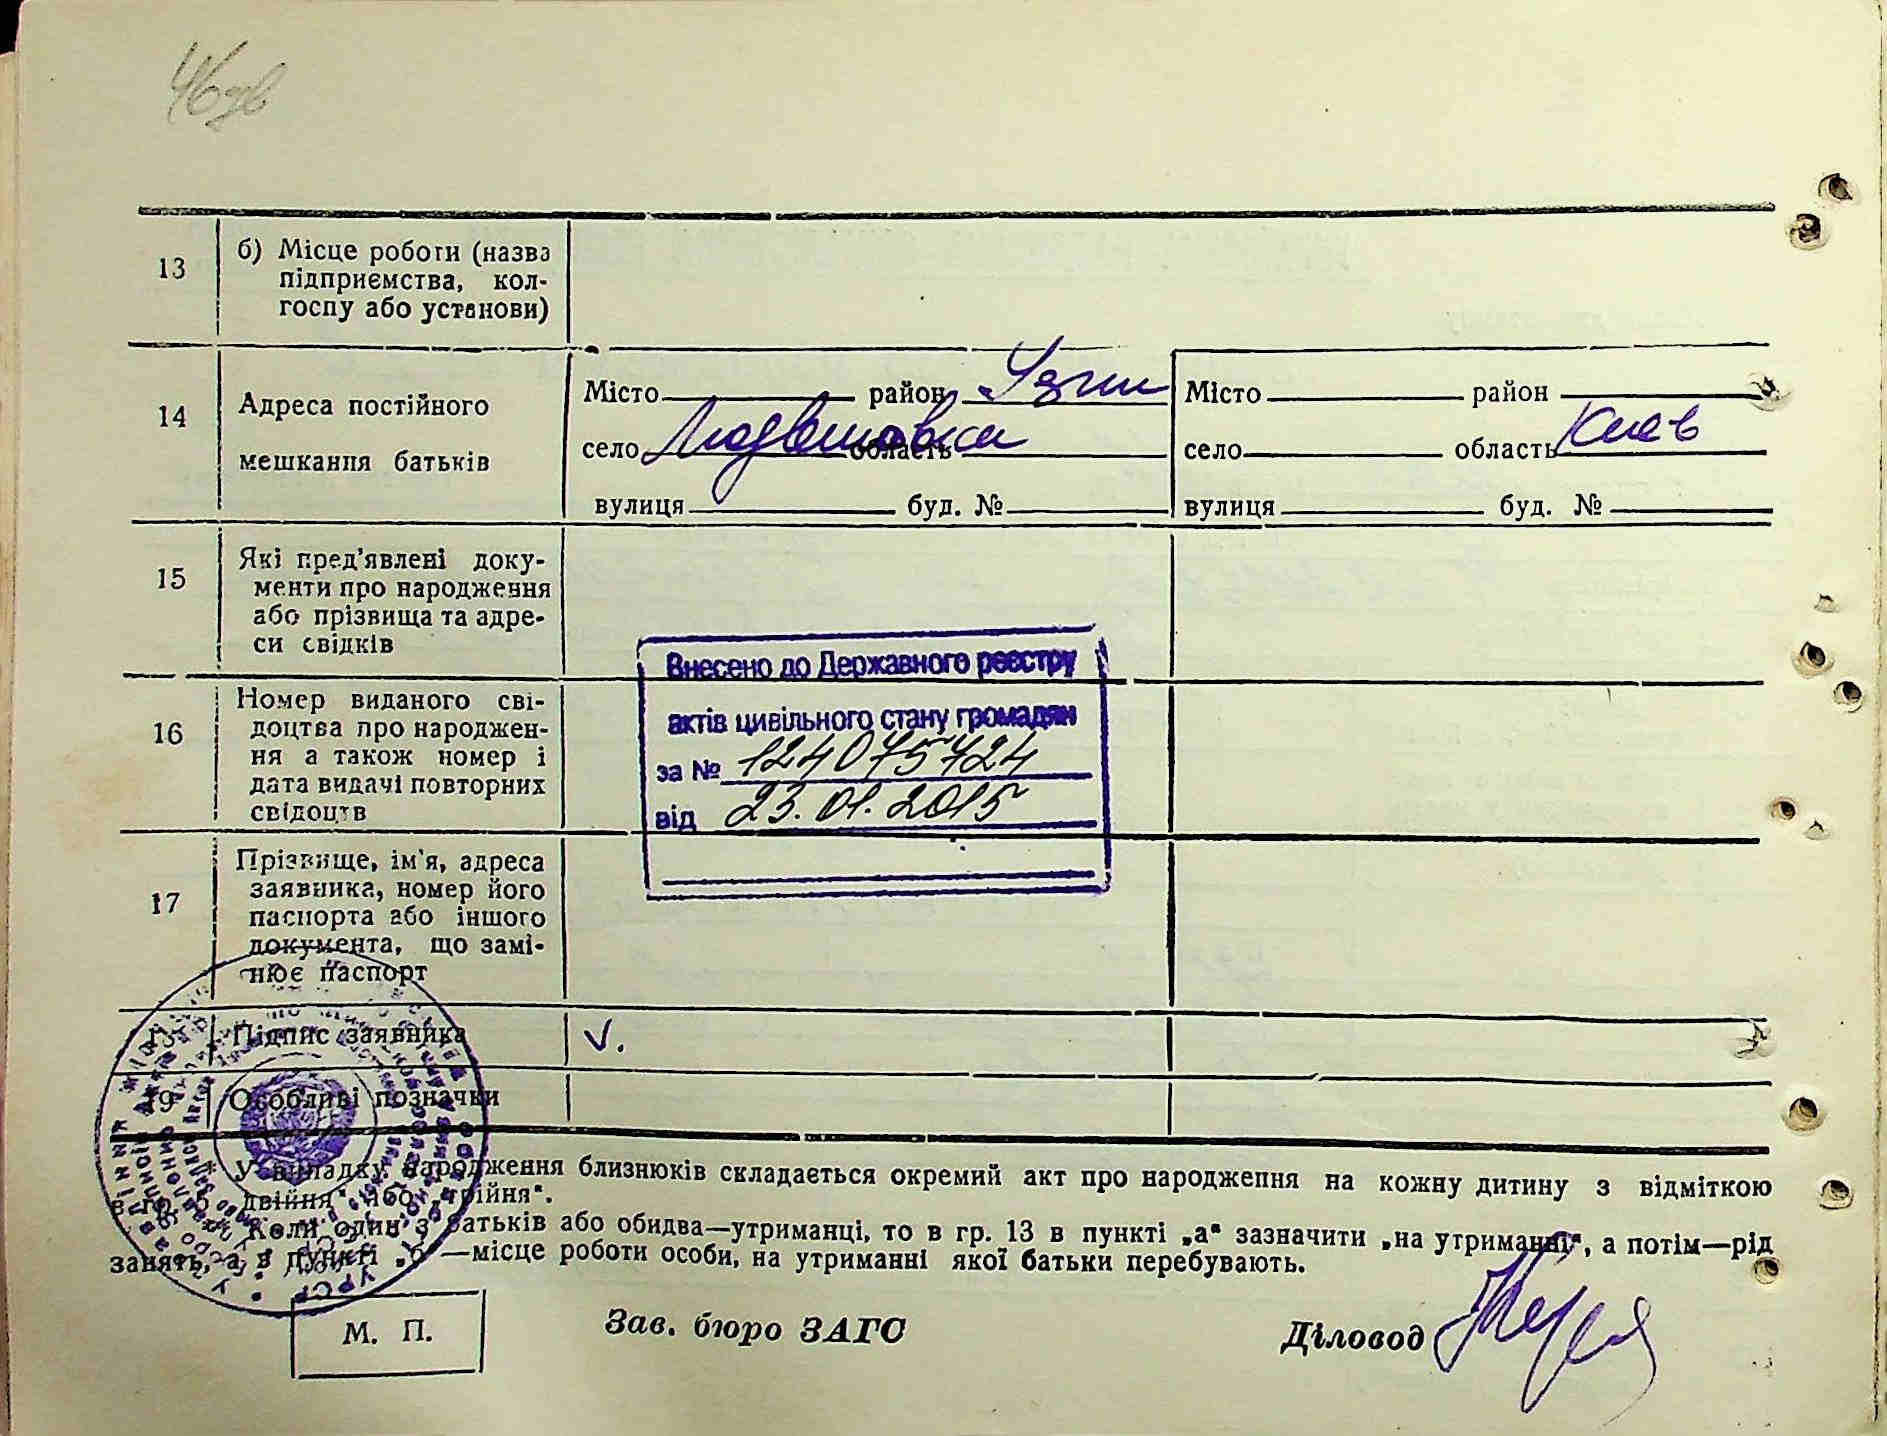 46 зв
13 б) Місце роботи (назва
підприємства, кол-
госпу або установи)
14 Адреса постійного
мешкання батьків
Місто район Узин
село Людвиновка область
вулиця буд. №
Місто район
село область Киев
вулиця буд. №
15 Які пред'явлені доку-
менти про народження
або прізвища та адре-
си свідків
16 Номер виданого сві-
доцтва про народжен-
ня а також номер і
дата видачі повторних
свідоцтв
Внесено до Державного реєстру
актів цивільного стану громадян
за № 1240757424
від 23.01.2015
17 Прізвище, ім'я, адреса
заявника, номер його
паспорта або іншого
документа, що замі-
нює паспорт
Підпис заявника V.
19 Особливі позначки
* У випадку народження близнюків складається окремий акт про народження на кожну дитину з відміткою
в гр. 5 „двійня“ або „трійня“.
Коли один з батьків або обидва—утриманці, то в гр. 13 в пункті „а“ зазначити „на утриманні“, а потім—рід
занять, а в пункті „б“—місце роботи особи, на утриманні якої батьки перебувають.
М. П. Зав. бюро ЗАГС Діловод
УРСР